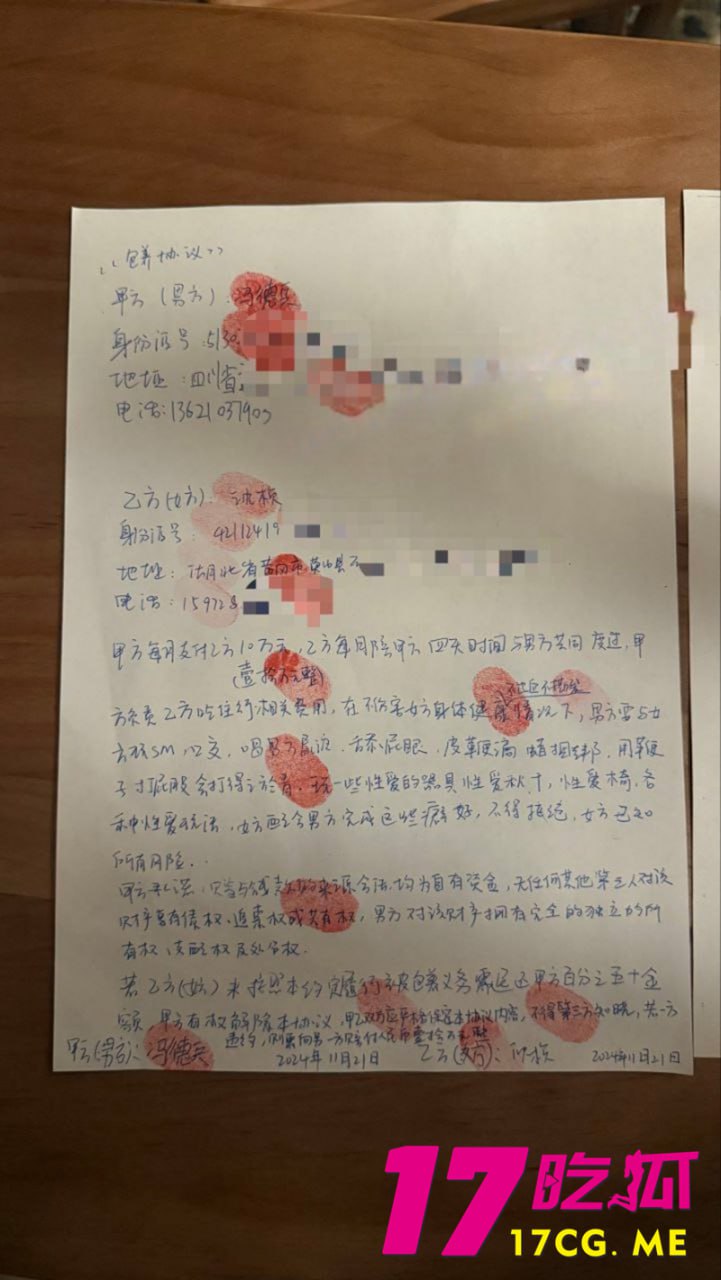 《包养协议》
甲方（男方）：
身份证号：
地址：
电话：
乙方（女方）：
身份证号：
地址：
电话：
甲方每月支付乙方10万元，乙方每月陪甲方四天时间与男方共同度过，甲
（壹拾万元整）
方负责乙方吃住行相关费用，在不伤害女方身体健康情况下，男方要与女
方玩SM，口交，舔屁眼，皮鞭滴蜡捆绑，用鞭
子打屁股会打得，玩一些性爱的器具性爱秋千，性爱椅，各
种性爱玩法，女方配合男方完成这些癖好，不得拒绝，女方已知
所有风险．．
甲方承诺，赠与钱款的来源合法，均为自有资金，无任何其他第三人对该
财产享有债权、追索权或共有权，男方对该财产拥有完全的独立的所
有权、支配权及处分权．
若乙方（女）未按照本约定履行被包养义务需退还甲方百分之五十金
额，甲方有权解除本协议，甲乙双方应严格保密本协议内容，不得第三方知晓，若一方
违约，则需向另一方赔付人民币壹拾万元整
甲方（男方）： 2024年11月21日 乙方（女方）： 2024年11月21日
17吃狐
17CG. ME